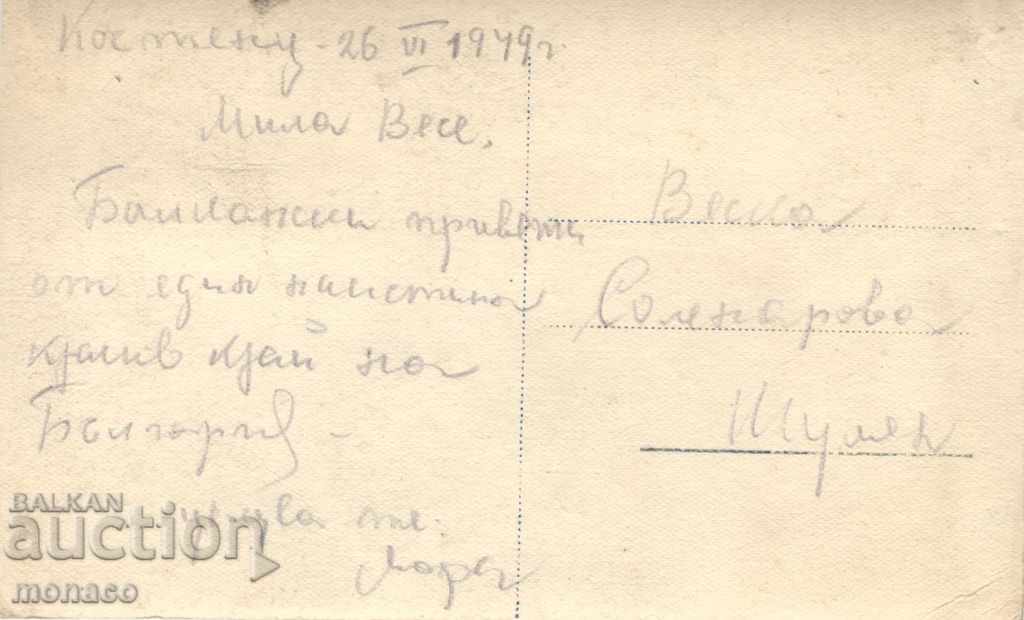 Костенец - 26 VI 1949 г.
Мила Весе,
Балкански привети
от един наистина
красив край на
България -
целува те:
Лора
Веска
Соленарова
Шумен
BALKAN
auction
monaco